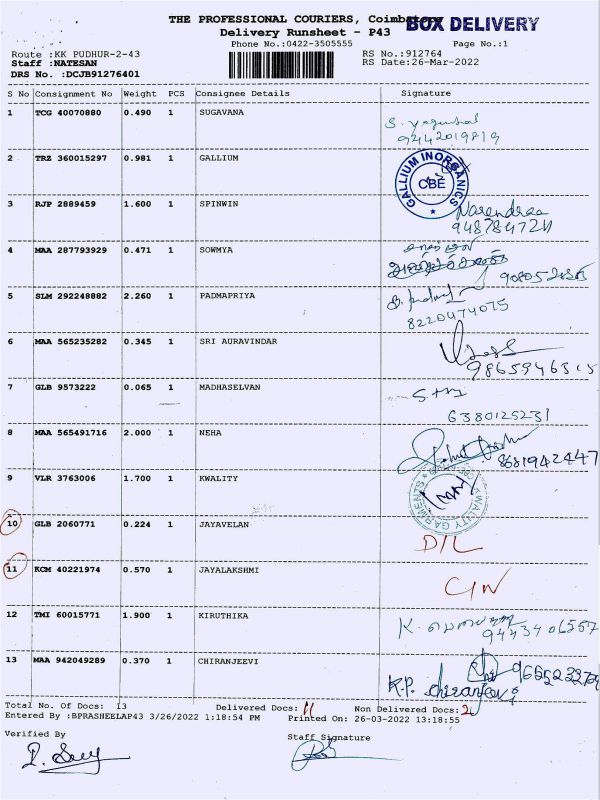 THE PROFESSIONAL COURIERS, Coimbatore
BOX DELIVERY
Delivery Runsheet - P43
Phone No.:0422-3505555
Page No.:1
Route :KK PUDHUR-2-43
RS No.:912764
Staff :NATESAN
RS Date:26-Mar-2022
DRS No. :DCJB91276401
S No Consignment No Weight PCS Consignee Details Signature
1 TCG 40070880 0.490 1 SUGAVANA
9442019819
2 TRZ 360015297 0.981 1 GALLIUM
GALLIUM INORGANICS CBE
3 RJP 2889459 1.600 1 SPINWIN
Narendraa
4 MAA 287793929 0.471 1 SOWMYA
5 SLM 292248882 2.260 1 PADMAPRIYA
8220474075
6 MAA 565235282 0.345 1 SRI AURAVINDAR
7 GLB 9573222 0.065 1 MADHASELVAN
6380125231
8 MAA 565491716 2.000 1 NEHA
8681942447
9 VLR 3763006 1.700 1 KWALITY
KWALITY GARMENTS
10 GLB 2060771 0.224 1 JAYAVELAN
D/L
11 KCM 40221974 0.570 1 JAYALAKSHMI
C/N
12 TMI 60015771 1.900 1 KIRUTHIKA
9443406557
13 MAA 942049289 0.370 1 CHIRANJEEVI
K.P. chiranjeevi
Total No. Of Docs: 13 Delivered Docs: 11 Non Delivered Docs: 2
Entered By :BPRASHEELAP43 3/26/2022 1:18:54 PM Printed On: 26-03-2022 13:18:55
Verified By
Staff Signature